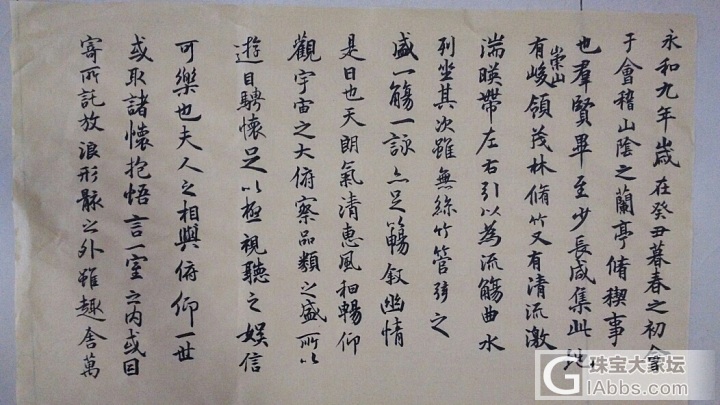 永和九年歲在癸丑暮春之初會
于會稽山陰之蘭亭脩禊事
也羣賢畢至少長咸集此地
有崇山峻領茂林脩竹又有清流激
湍暎帶左右引以為流觴曲水
列坐其次雖無絲竹管弦之
盛一觴一詠亦足以暢叙幽情
是日也天朗氣清惠風和暢仰
觀宇宙之大俯察品類之盛所以
遊目騁懷足以極視聽之娛信
可樂也夫人之相與俯仰一世
或取諸懷抱悟言一室之內或因
寄所託放浪形骸之外雖趣舍萬
珠宝大家坛
GIAbbs.com